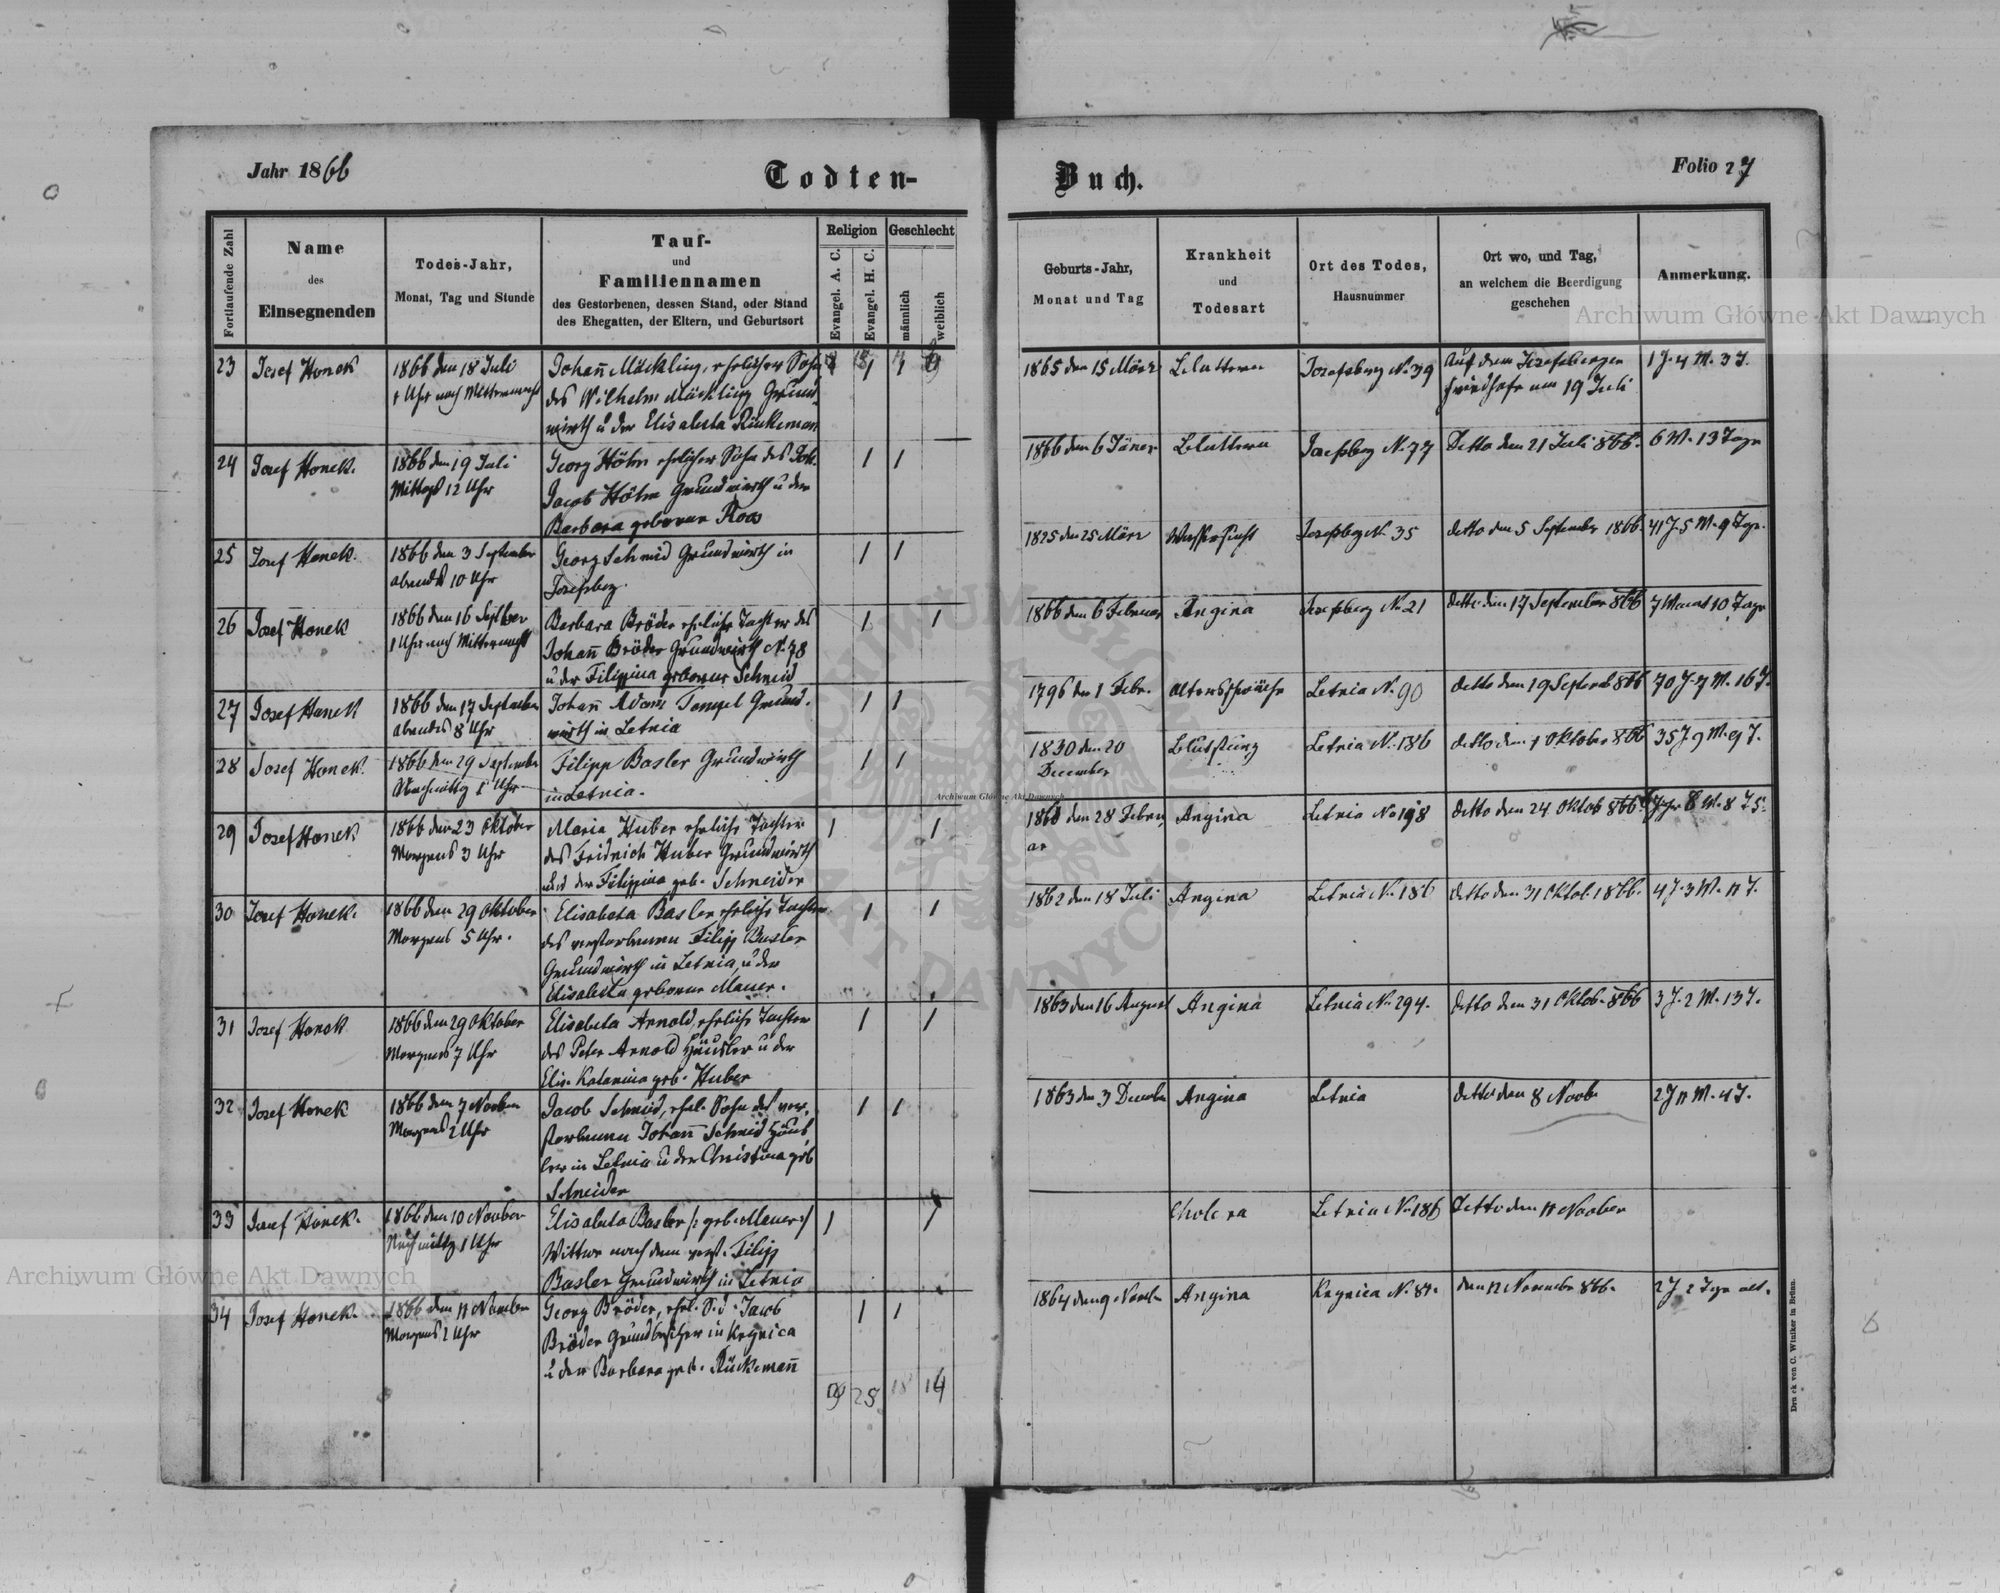 Jahr 1866
Todten-
Buch.
Folio 27
Fortlaufende Zahl
Name
des
Einsegnenden
Todes-Jahr,
Monat, Tag und Stunde
Tauf-
und
Familiennamen
des Gestorbenen, dessen Stand, oder Stand
des Ehegatten, der Eltern, und Geburtsort
Religion
Evangel. A. C.
Evangel. H. C.
Geschlecht
männlich
weiblich
Geburts-Jahr,
Monat und Tag
Krankheit
und
Todesart
Ort des Todes,
Hausnummer
Ort wo, und Tag,
an welchem die Beerdigung
geschehen
Anmerkung.
Archiwum Główne Akt Dawnych
23 Josef Honek
1866 den 18 Juli
1 Uhr nach Mitternacht
Johann Mäckling, ehelicher Sohn
des Wilhelm Mäckling Grund-
wirth u der Elisabeta Rückeman
1 1
1865 den 15 März
Blattern
Josefsberg No. 39
Auf dem Josefsberger
Friedhofe am 19 Juli
1 J. 4 M. 3 T.
24 Josef Honek.
1866 den 19 Juli
Mittags 12 Uhr
Georg Höhn ehelicher Sohn des Joh.
Jacob Höhn Grundwirth u der
Barbara geborene Roos
1 1
1866 den 6 Jäner
Blattern
Josefsberg N. 77
Detto den 21 Juli 866.
6 M. 13 Tage
25 Josef Honek.
1866 den 3 September
abends 10 Uhr
Georg Schmid Grundwirth in
Josefsberg.
1 1
1825 den 25 März
Wassersucht
Josefsbg N. 35
detto den 5 September 1866.
41 J. 5 M. 9 Tage.
26 Josef Honek
1866 den 16 Septber
1 Uhr nach Mitternacht
Barbara Bröder eheliche Tochter des
Johann Bröder Grundwirth N. 78
u der Filippina geborene Schmid
1 1
1866 den 6 Februar
Angina
Josefsberg No. 21
detto den 17 September 866
7 Monat 10 Tage
27 Josef Honek
1866 den 17 September
abends 8 Uhr
Johann Adam Tempel Grund-
wirth in Letnia
1 1
1796 den 1 Febr.
Altersschwäche
Letnia N. 90
detto den 19 Septemb 866
70 J. 7 M. 16 T.
28 Josef Honek.
1866 den 29 September
Nachmittg 1 Uhr
Filipp Basler Grundwirth
in Letnia.
1 1
1830 den 20
December
Blutsturz
Letnia N. 186
detto den 1 Oktober 866
35 J 9 M. 9 T.
29 Josef Honek
1866 den 23 Oktober
Morgens 3 Uhr
Maria Huber eheliche Tochter
des Fridrich Huber Grundwirth
und der Filippina geb. Schneider
1 1
den 28 Febru
ar
Angina
Letnia No 198
detto den 24 Oktob 866.
30 Josef Honek.
1866 den 29 Oktober
Morgens 5 Uhr.
Elisabeta Basler eheliche Tochter
des verstorbenen Filipp Basler
Grundwirth in Letnia, u der
Elisabeta geborene Mauer.
1 1
1862 den 18 Juli
Angina
Letnia N. 186
detto den 31 Oktob. 1866.
4 J. 3 M. 11 T.
31 Josef Honek
1866 den 29 Oktober
Morgens 7 Uhr
Elisabeta Arnold, eheliche Tochter
des Peter Arnold Häusler u der
Elis. Katarina geb. Huber
1 1
1863 den 16 August
Angina
Letnia N. 294.
detto den 31 Oktob. 866
3 J. 2 M. 13 T.
32 Josef Honek
1866 den 7 Novber
Morgens 2 Uhr
Jacob Schmid, ehel. Sohn des ver-
storbenen Johann Schmid Häus
ler in Letnia u der Christina geb
Schneider
1 1
1863 den 3 Decembr
Angina
Letnia
detto den 8 Novbr
2 J 11 M. 4 T.
33 Josef Honek.
1866 den 10 November
Nachmittg 1 Uhr
Elisabeta Basler /: geb. Mauer :/
Wittwe nach dem verst. Filipp
Basler Grundwirth in Letnia
1 1
Cholera
Letnia N. 186
Detto den 11 November
34 Josef Honek.
1866 den 11 November
Morgens 2 Uhr
Georg Bröder, ehel. S. d. Jacob
Bröder Grundbesitzer in Krynica
u der Barbara geb. Rückemann
1 1
1864 den 9 Novbr
Angina
Krynica N. 84.
den 12 November 866.
2 J 2 Tage alt.
25 18 14
Druck von C. Winiker in Brünn.
Archiwum Główne Akt Dawnych
Archiwum Główne Akt Dawnych
ARCHIWUM GŁÓWNE AKT DAWNYCH